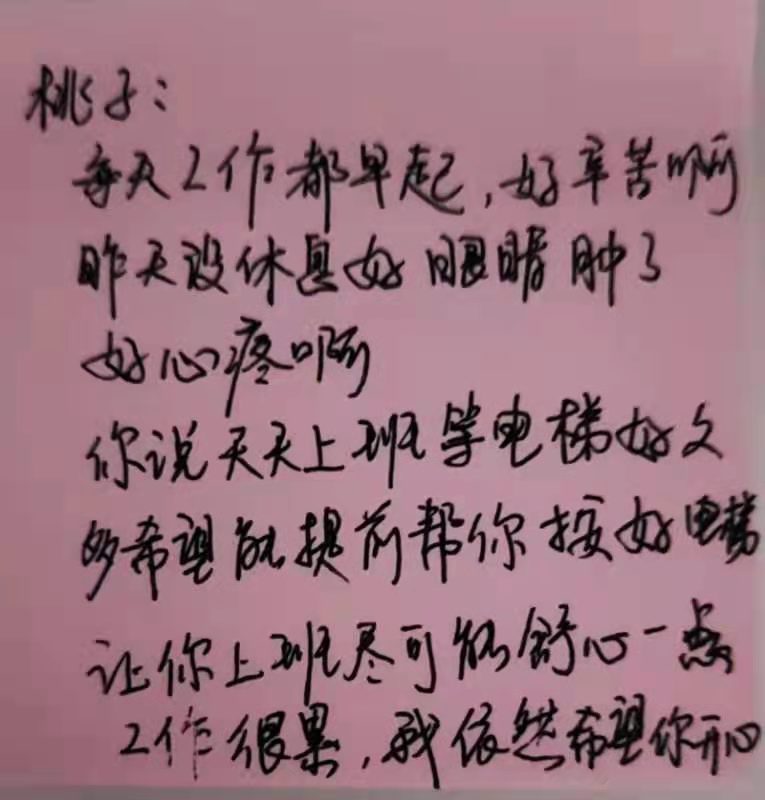 桃子：
每天工作都早起，好辛苦啊
昨天没休息好 眼睛肿了
好心疼啊
你说天天上班等电梯好久
多希望能提前帮你按好电梯
让你上班尽可能舒心一点
工作很累，我依然希望你开心